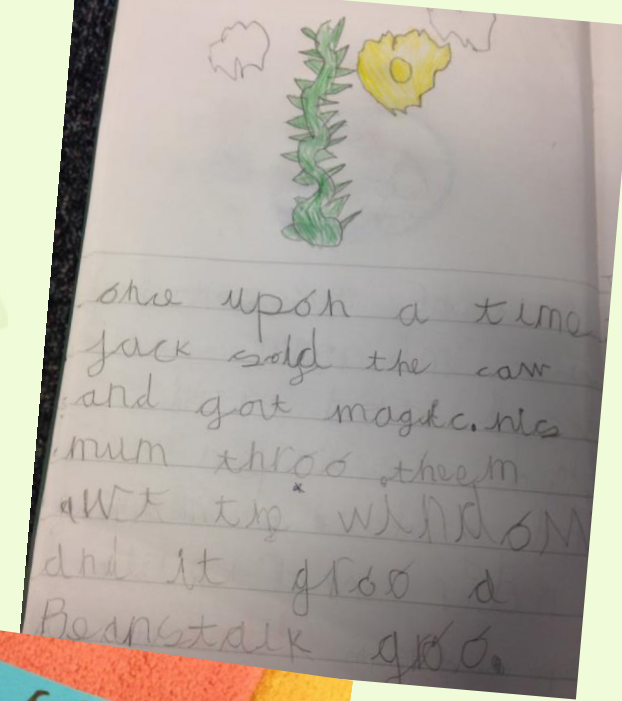 one upon a time
Jack sold the caw
and got magic. his
mum throo theem
awt the window
and it groo a
Beanstalk groo.